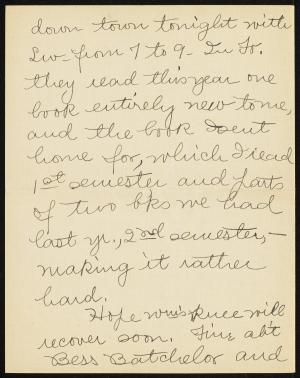 down town tonight with
Liv- from 7 to 9- In Fr.
they read this year one
book entirely new to me,
and the book I sent
home for, which I read
1st semester and parts
of two bks we had
last yr., 2nd semester,-
making it rather
hard.
Hope knee will
recover soon. Fine ab't
Bess Batchelor and